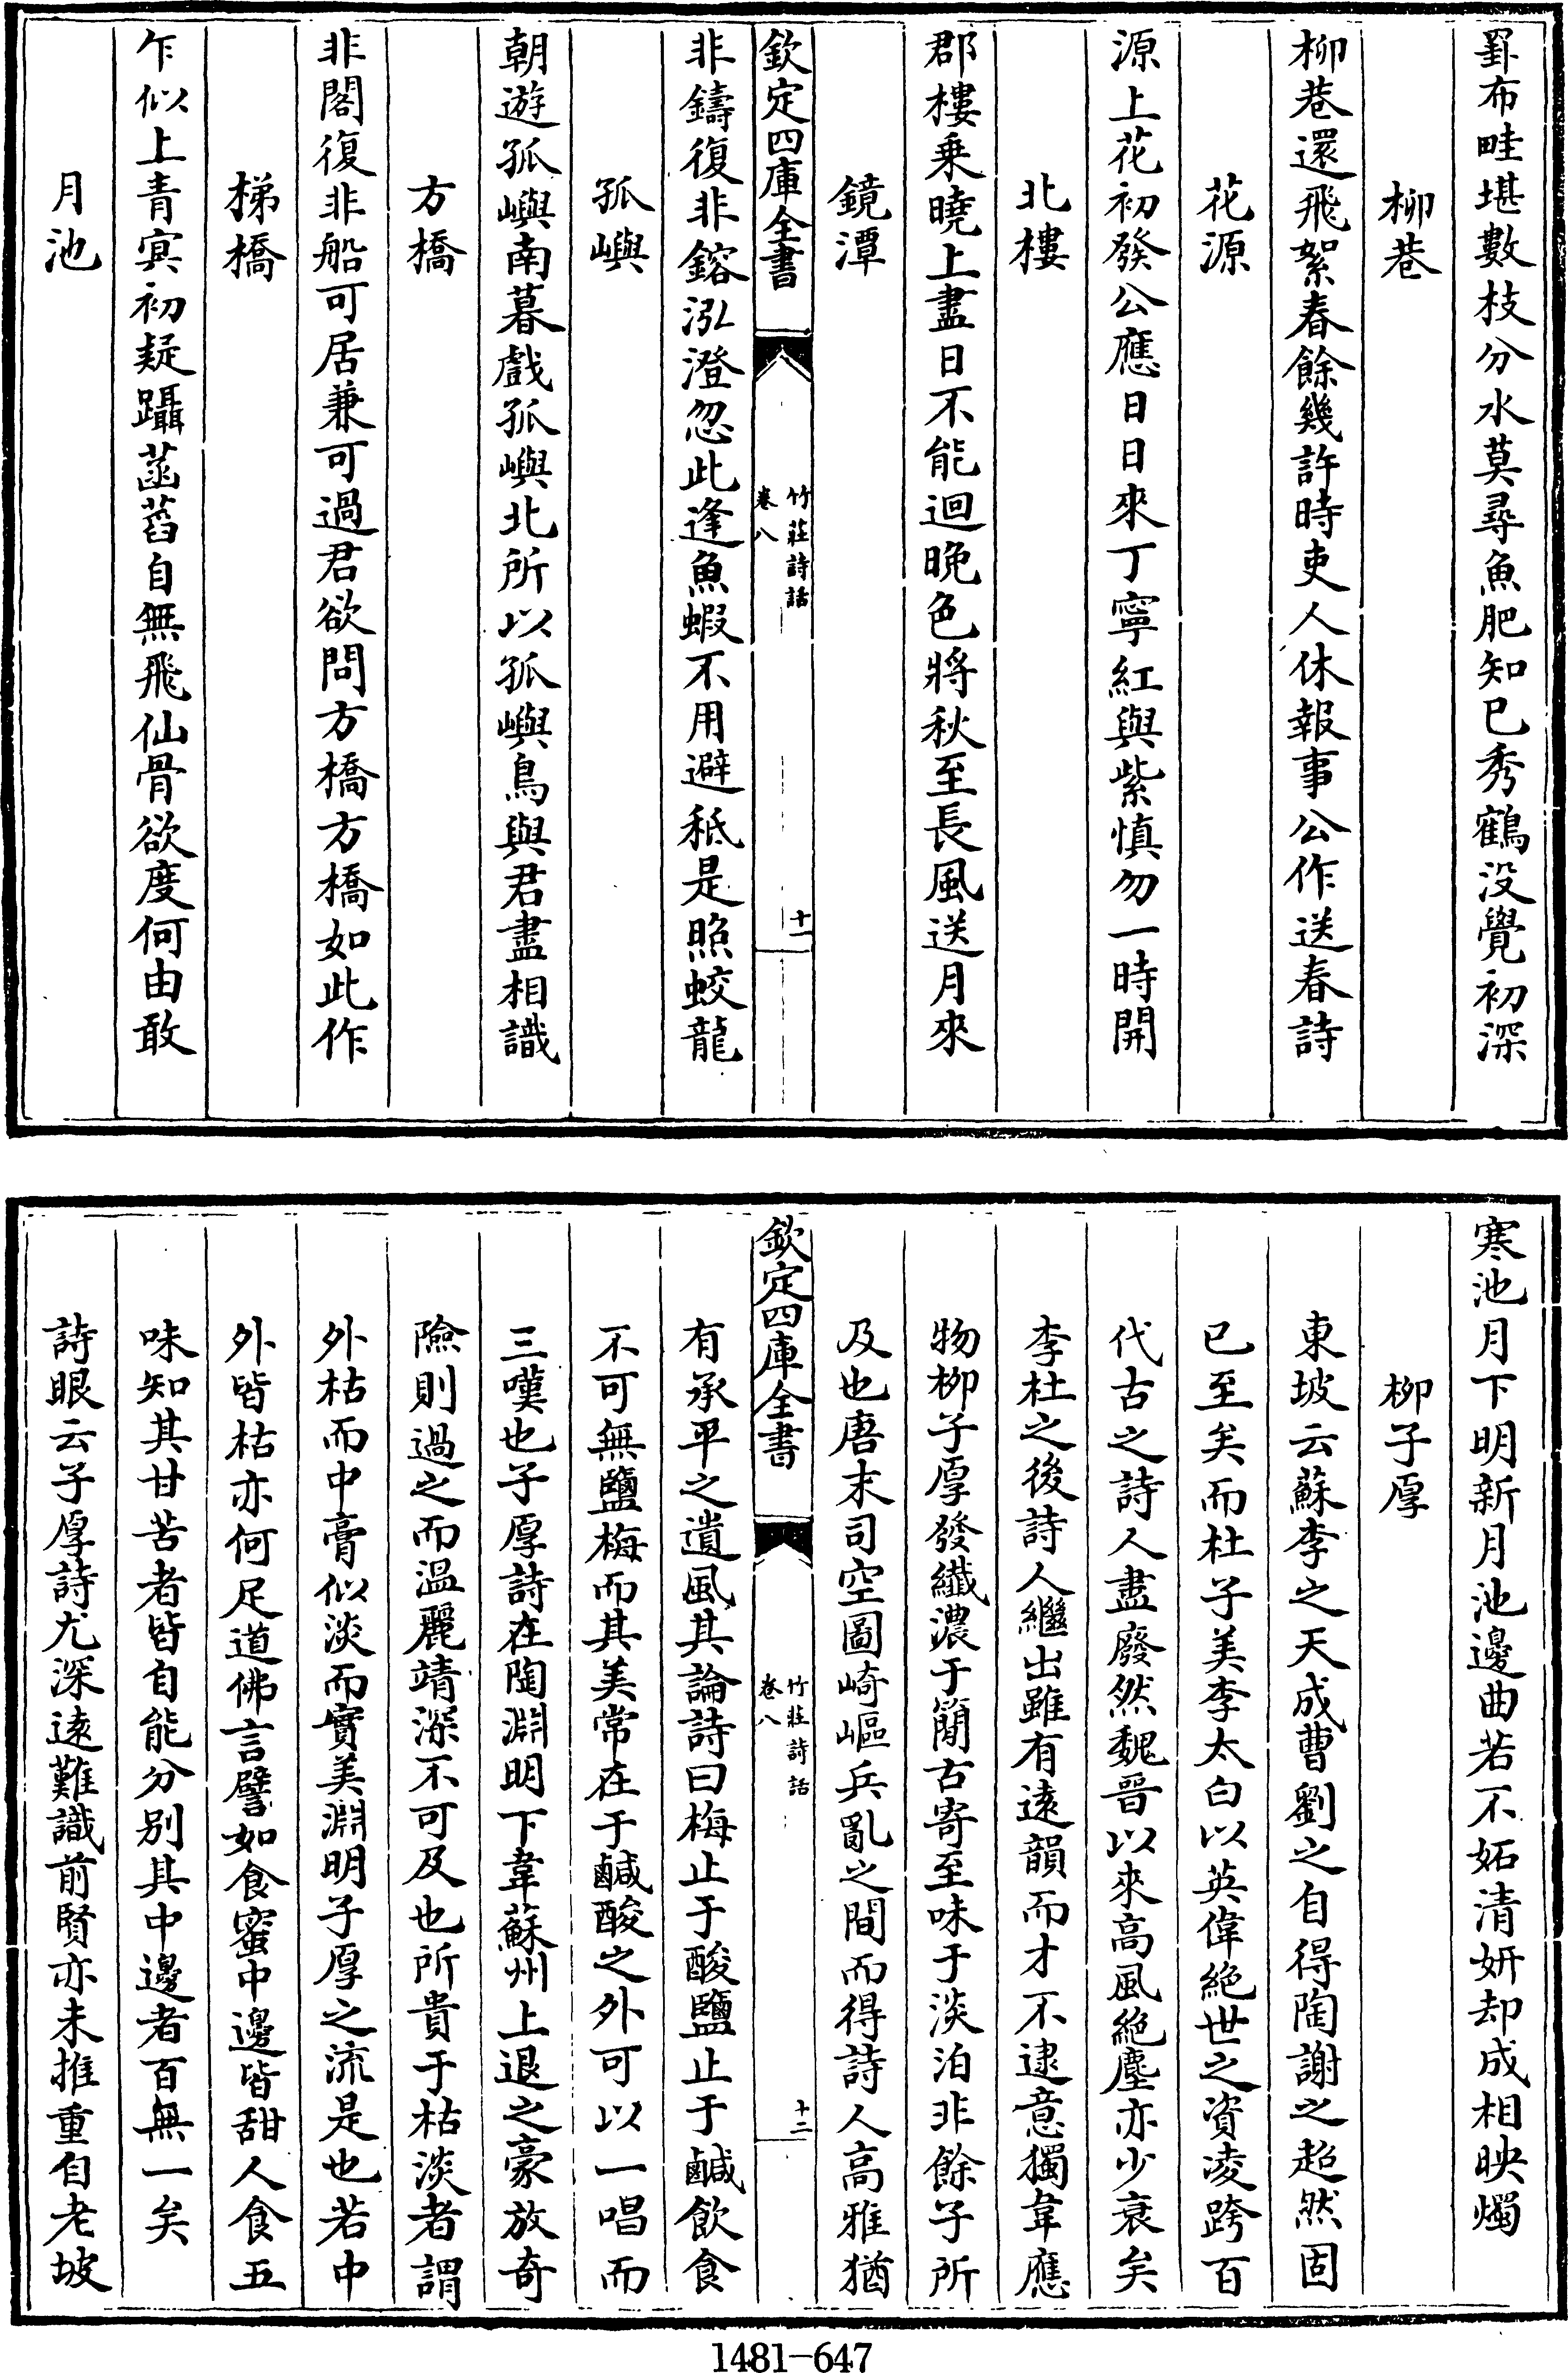 罫布畦堪數枝分水莫尋魚肥知已秀鶴没覺初深
柳巷
柳巷還飛絮春餘幾許時吏人休報事公作送春詩
花源
源上花初發公應日日來丁寧紅與紫慎勿一時開
北樓
郡樓乗曉上盡日不能迴晚色將秋至長風送月來
鏡潭
欽定四庫全書
竹莊詩話
卷八
十一
非鑄復非鎔泓澄忽此逢魚蝦不用避秪是照蛟龍
孤嶼
朝遊孤嶼南暮戲孤嶼北所以孤嶼鳥與君盡相識
方橋
非閣復非船可居兼可過君欲問方橋方橋如此作
梯橋
乍似上青冥初疑躡菡萏自無飛仙骨欲度何由敢
月池
寒池月下明新月池邊曲若不妬清妍却成相映燭
柳子厚
東坡云蘇李之天成曹劉之自得陶謝之超然固
已至矣而杜子美李太白以英偉絶世之資凌跨百
代古之詩人盡廢然魏晉以來高風絶塵亦少衰矣
李杜之後詩人繼出雖有遠韻而才不逮意獨韋應
物柳子厚發纖濃于簡古寄至味于淡泊非餘子所
及也唐末司空圖崎嶇兵亂之間而得詩人高雅猶
欽定四庫全書
竹莊詩話
卷八
十二
有承平之遺風其論詩曰梅止于酸鹽止于鹹飲食
不可無鹽梅而其美常在于鹹酸之外可以一唱而
三嘆也子厚詩在陶淵明下韋蘇州上退之豪放奇
險則過之而温麗靖深不可及也所貴于枯淡者謂
外枯而中膏似淡而實美淵明子厚之流是也若中
外皆枯亦何足道佛言譬如食蜜中邊皆甜人食五
味知其甘苦者皆自能分别其中邊者百無一矣
詩眼云子厚詩尤深遠難識前賢亦未推重自老坡
1481-647